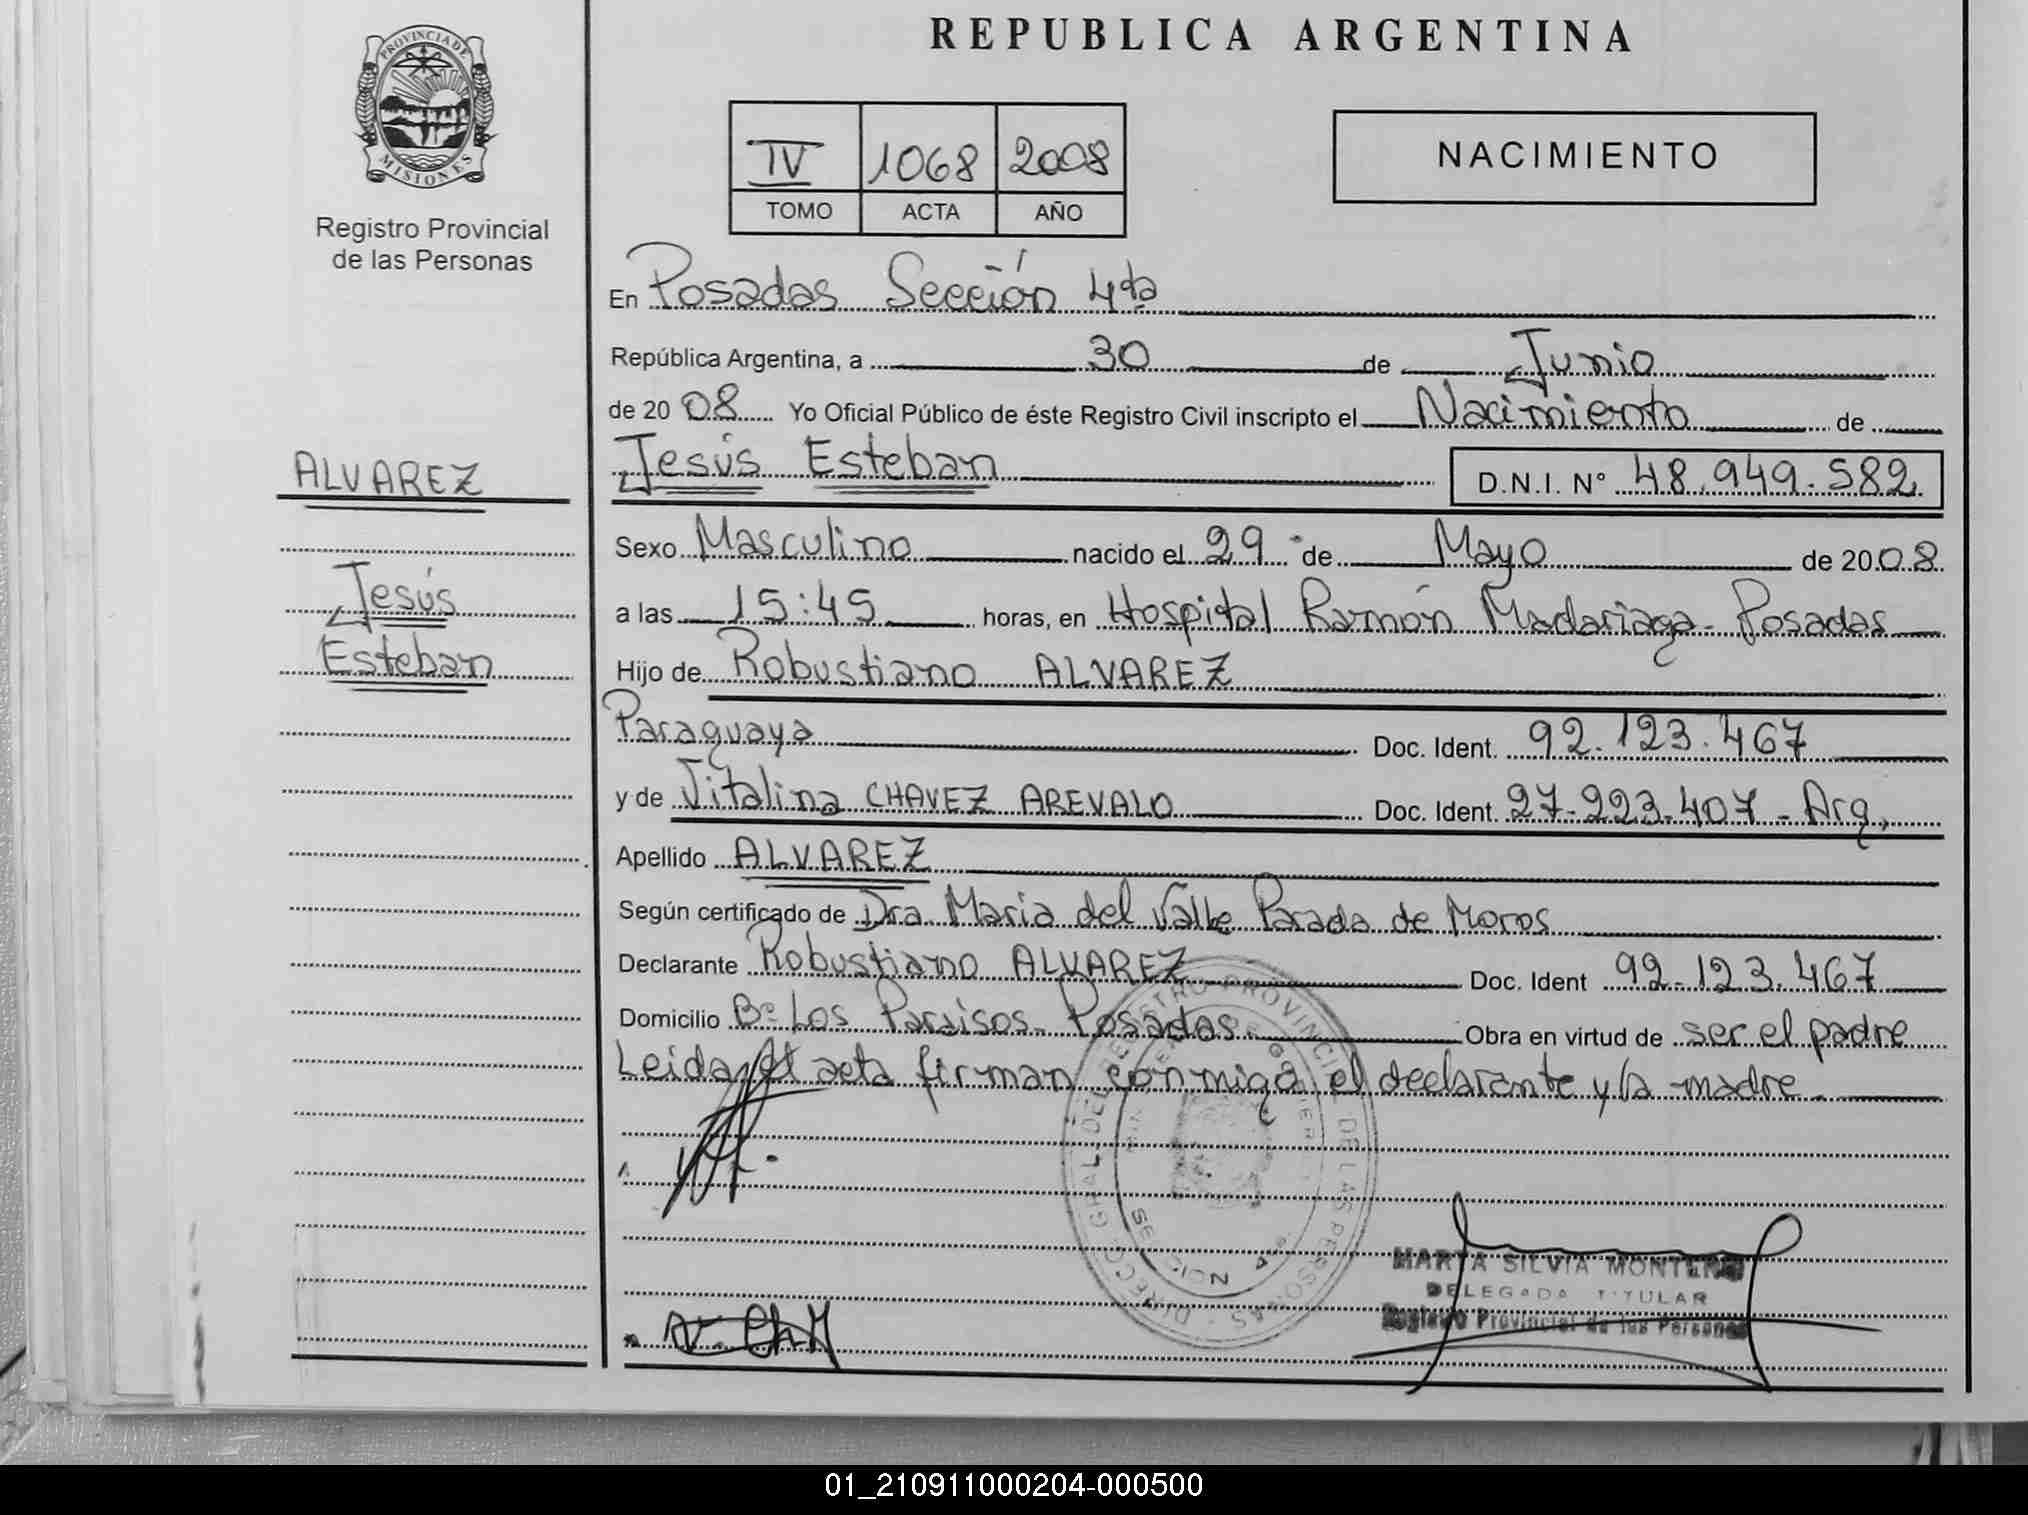 REPUBLICA ARGENTINA
PROVINCIA DE
MISIONES
Registro Provincial
de las Personas
IV 1068 2008
TOMO ACTA AÑO
NACIMIENTO
En Posadas Sección 4ta
República Argentina, a 30 de Junio
de 20 08 Yo Oficial Público de éste Registro Civil inscripto el Nacimiento de
ALVAREZ
Jesús
Esteban
Jesús Esteban D.N.I. N° 48.949.582
Sexo Masculino nacido el 29 de Mayo de 20 08
a las 15:45 horas, en Hospital Ramón Madariaga - Posadas
Hijo de Robustiano ALVAREZ
Paraguaya Doc. Ident. 92.123.467
y de Vitalina CHAVEZ AREVALO Doc. Ident. 27.223.407 - Arg.
Apellido ALVAREZ
Según certificado de Dra. Maria del Valle Parada de Moros
Declarante Robustiano ALVAREZ Doc. Ident 92.123.467
Domicilio Bº Los Paraisos - Posadas Obra en virtud de ser el padre
Leida el acta firman conmigo el declarante y la madre.
DIRECC. GRAL. DEL REGISTRO PROVINCIAL DE LAS PERSONAS
SECCION 4ª
MARTA SILVIA MONTERO
DELEGADA TITULAR
Registro Provincial de las Personas
V. Ch
01_210911000204-000500